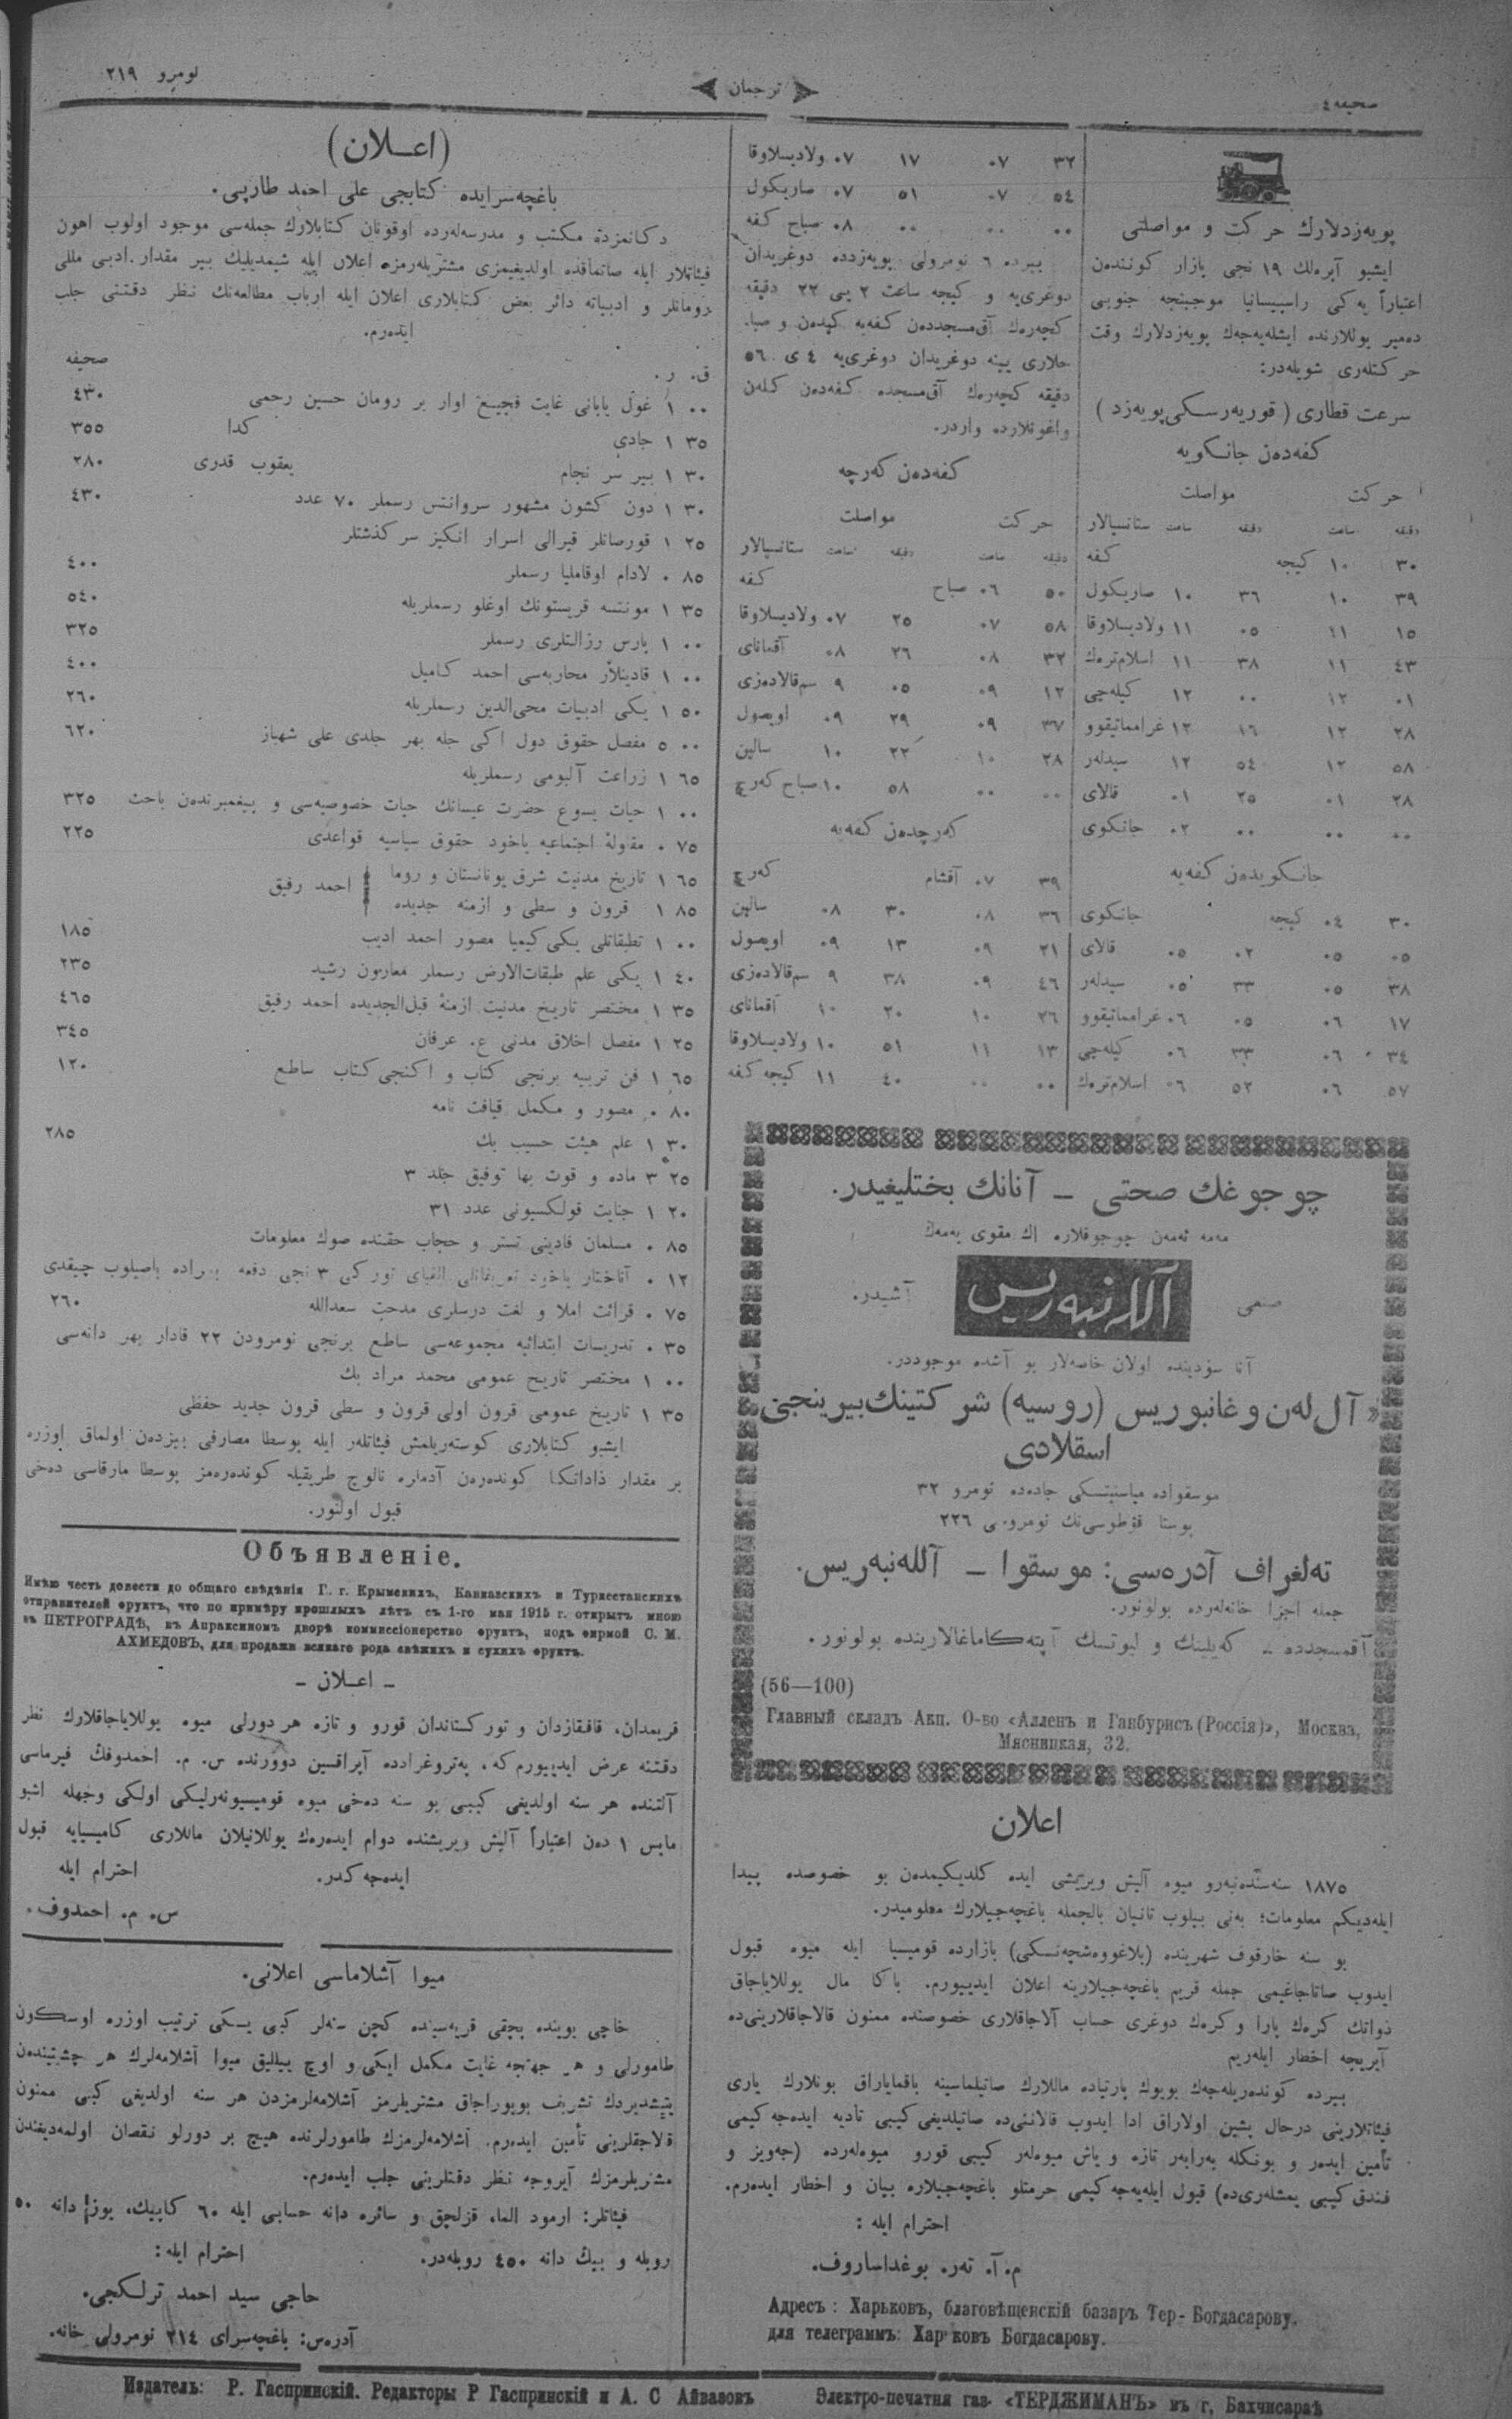 صحیفه ٤
ترجمان
نومرو ٢١٩
پویەزدلارك حرکت و مواصلتی
ایشبو آیرەلك ١٩ نجی بازار کونندەن
اعتباراً یەکی راسپیسانیا موجبنجه جنوبی
دەمیر یوللارنده ایشلەیەجەك پویەزدلارك وقت
حرکتلەری شویلەدر:
سرعت قطاری (قوریەرسکی پویەزد)
کفەدەن جانکویه
حرکت مواصلت
دقیقه ساعت دقیقه ساعت ستانسیالار
٣٠ ١٠ کیجه کفه
٣٩ ١٠ ٣٦ ١٠ صاریکول
١٥ ١١ ٠٥ ١١ ولادیسلاوقا
٤٣ ١١ ٣٨ ١١ اسلام‌ترەك
٠١ ١٢ ٠٠ ١٢ کیلەچی
٢٨ ١٢ ١٦ ١٢ غراماتیقوو
٥٨ ١٢ ٥٤ ١٢ سیدلەر
٢٨ ٠١ ٢٥ ٠١ قالای
٠٠ ٠٠ ٠٠ ٠٢ جانکوی
جانکویدەن کفەیه
٣٠ ٠٤ کیجه جانکوی
٠٥ ٠٥ ٠٢ ٠٥ قالای
٣٨ ٠٥ ٣٣ ٠٥ سیدلەر
١٧ ٠٦ ٠٥ ٠٦ غراماتیقوو
٣٤ ٠٦ ٣٣ ٠٦ کیلەچی
٥٧ ٠٦ ٥٢ ٠٦ اسلام‌ترەك
٣٢ ٠٧ ١٧ ٠٧ ولادیسلاوقا
٥٤ ٠٧ ٥١ ٠٧ صاریکول
٠٠ ٠٠ ٠٠ ٠٨ صباح کفه
بیرده ٦ نومرولی پویەزدده دوغریدان
دوغری‌یه و کیجه ساعت ٢ یی ٢٢ دقیقه
کچەرەك آق‌مسجددەن کفەیه کیدەن و صبا۔
حلاری یینه دوغریدان دوغری‌یه ٤ ی ٥٦
دقیقه کچەرەك آق‌مسجده کفەدەن کلەن
واغونلارده واردر.
کفەدەن کەرچه
حرکت مواصلت
دقیقه ساعت دقیقه ساعت ستانسیالار
٥٠ ٠٦ صباح کفه
٥٨ ٠٧ ٢٥ ٠٧ ولادیسلاوقا
٣٢ ٠٨ ٢٦ ٠٨ آقمانای
١٢ ٠٩ ٠٥ ٩ سم‌قالادەزی
٣٧ ٠٩ ٢٩ ٠٩ اویصول
٢٨ ١٠ ٢٢ ١٠ سالین
٠٠ ٠٠ ٥٨ ١٠ صباح کەرچ
کەرچدەن کفەیه
٣٩ ٠٧ آقشام کەرچ
٣٦ ٠٨ ٣٠ ٠٨ سالین
٢١ ٠٩ ١٣ ٠٩ اویصول
٤٦ ٠٩ ٣٨ ٩ سم‌قالادەزی
٢٦ ١٠ ٢٠ ١٠ آقمانای
١٣ ١١ ٥١ ١٠ ولادیسلاوقا
٠٠ ٠٠ ٤٠ ١١ کیجه کفه
چوجوغك صحتی – آنانك بختلیغیدر.
مەمه ئەمەن چوجوقلاره اك مقوی یەمەك
صنعی آللەنبەریس آشیدر.
آنا سودینده اولان خاصەلار بو آشده موجوددر.
«آل‌لەن و غانبوریس (روسیه) شرکتینك بیرینجی
اسقلادی
موسقواده میاسنیتسکی جادەده نومرو ٣٢
پوستا قوطوسی‌نك نومروسی ٢٢٦
تەلغراف آدرەسی: موسقوا – آللەنبەریس.
جمله اجزا خانەلەرده بولونور.
آقمسجدده – کەیلینك و لیوتسك آپتەکاماغالارینده بولونور.
(56—100)
Главный складъ Акц. О-во «Алленъ и Ганбурисъ (Россія)», Москва,
Мясницкая, 32.
اعلان
١٨٧٥ سنەسندەنبەرو میوه آلیش ویریشی ایده کلدیکیمدەن بو خصوصده پیدا
ایلەدیکم معلومات؛ بەنی بیلوب تانیان بالجمله باغچەجیلارك معلومیدر.
بو سنه خارقوف شهرینده (بلاغووەشچەنسکی) بازارده قومیسیا ایله میوه قبول
ایدوب صاتاجاغیمی جمله قریم باغچەجیلارینه اعلان ایدییورم. باکا مال یوللایاجاق
ذواتك کرەك پارا و کرەك دوغری حساب آلاجاقلاری خصوصنده ممنون قالاجاقلارینی‌ده
آیریجه اخطار ایلەریم
بیرده کوندەریلەجەك بویوك پارتیاده ماللارك صاتیلماسینه باقمایاراق بونلارك یاری
فیئاتلارینی درحال پشین اولاراق ادا ایدوب قالاننی‌ده صاتیلدیغی کیبی تأدیه ایدەجەکیمی
تأمین ایدەر و بونکله بەرابەر تازه و یاش میوەلەر کیبی قورو میوەلەرده (جەویز و
فندق کیبی یمشلەری‌ده) قبول ایلەیەجەکیمی حرمتلو باغچەجیلاره بیان و اخطار ایدەرم.
احترام ایله:
م. آ. تەر. بوغداساروف.
Адресъ: Харьковъ, благовѣщенскій базаръ Тер-Богдасарову.
для телеграммъ: Харьковъ Богдасарову.
(اعلان)
باغچەسرایده کتابجی علی احمد طارپی.
دکانمزدە مکتب و مدرسەلەرده اوقونان کتابلارك جملەسی موجود اولوب اهون
فیئاتلار ایله صاتماقده اولدیغیمزی مشتریلەرمزە اعلان ایله شیمدیلیك بیر مقدار ادبی مللی
رومانلر و ادبیاته دائر بعض کتابلاری اعلان ایله ارباب مطالعەنك نظر دقتنی جلب
ایدەرم.
ق. ر. صحیفه
٠٠ ١ غول یابانی غایت فجیع اوار بر رومان حسین رحمی ٤٣٠
٣٥ ١ جادی کذا ٣٥٥
٣٠ ١ بیر سر نجام یعقوب قدری ٢٨٠
٣٠ ١ دون کشون مشهور سروانتس رسملر ٧٠ عدد ٤٣٠
٢٥ ١ قورصانلر قیرالی اسرار انکیز سرکذشتلر
٨٥ ٠ لادام اوقاملیا رسملر ٤٠٠
٣٥ ١ مونتسه قریستونك اوغلو رسملریله ٥٤٠
٠٠ ١ پارس رزالتلری رسملر ٣٢٥
٠٠ ١ قادینلار محاربەسی احمد کامیل ٤٠٠
٥٠ ١ یکی ادبیات محی‌الدین رسملریله ٢٦٠
٠٠ ٥ مفصل حقوق دول اکی جله بهر جلدی علی شهباز ٦٢٠
٦٥ ١ زراعت آلبومی رسملریله
٠٠ ١ حیات یسوع حضرت عیسانك حیات خصوصیەسی و پیغمبرندەن باحث ٣٢٥
٧٥ ٠ مقاولهٔ اجتماعیه یاخود حقوق سیاسیه قواعدی ٢٢٥
٦٥ ١ تاریخ مدنیت شرق یونانستان و روما
٨٥ ١ قرون وسطی و ازمنه جدیده
احمد رفیق
٠٠ ١ تطبقاتلی یکی کیمیا مصور احمد ادیب ١٨٥
٤٠ ١ یکی علم طبقات‌الارض رسملر معارون رشید ٢٣٥
٣٥ ١ مختصر تاریخ مدنیت ازمنهٔ قبل‌الجدیده احمد رفیق ٤٦٥
٢٥ ١ مفصل اخلاق مدنی ع. عرفان ٣٤٥
٦٥ ١ فن تربیه برنجی کتاب و اکنجی کتاب ساطع ١٢٠
٨٠ ٠ مصور و مکمل قیافت نامه
٣٠ ١ علم هیئت حسیب بك ٢٨٥
٢٥ ٣ ماده و قوت بها توفیق جلد ٣
٢٠ ١ جنایت قولکسیونی عدد ٣١
٨٥ ٠ مسلمان قادینی تستر و حجاب حقنده صوك معلومات
١٢ ٠ آناختار یاخود الفبای تورکی ٣ نجی دفعه باصیلوب چیقدی
٧٥ ٠ قرائت املا و لغت درسلری مدحت سعدالله ٢٦٠
٣٥ ٠ تدریسات ابتدائیه مجموعەسی ساطع برنجی نومرودن ٢٢ قادار بهر دانەسی
٠٠ ١ مختصر تاریخ عمومی محمد مراد بك
٣٥ ١ تاریخ عمومی قرون اولی قرون وسطی قرون جدید حفظی
ایشبو کتابلاری کوستەریلمش فیئاتلەر ایله پوسطا مصارفی بیزدەن اولماق اوزره
بر مقدار ذاداتکا کوندەرەن آدملره نالوج طریقیله کوندەرەمز پوسطا مارقاسی دەخی
قبول اولنور.
Объявленіе.
Имѣю честь довести до общаго свѣдѣнія Г. г. Крымскихъ, Кавказскихъ и Туркестанскихъ
отправителей фруктъ, что по примѣру прошлыхъ лѣтъ съ 1-го мая 1915 г. открытъ мною
въ ПЕТРОГРАДѢ, въ Апраксиномъ дворѣ коммиссіонерство фруктъ, подъ фирмой С. М.
АХМЕДОВЪ, для продажи всякаго рода свѣжихъ и сухихъ фруктъ.
– اعلان –
قریمدان، قافقازدان و تورکستاندان قورو و تازه هر دورلی میوه یوللایاجاقلارك نظر
دقتنه عرض ایدییورم که، پەتروغرادده آپراقسین دوورنده س. م. احمدوفك فیرماسی
آلتنده هر سنه اولدیغی کیبی بو سنه دەخی میوه قومیسیونەرلیکی اولکی وجهله اشبو
مایس ١ دەن اعتباراً آلیش ویریشنده دوام ایدەرەك یوللانیلان ماللاری کامیسیایه قبول
ایدەجەکدر. احترام ایله
س. م. احمدوف.
میوا آشلاماسی اعلانی.
حاجی بوینده بچقی قریەسینده کچن سنەلر کبی یسکی ترتیب اوزره اوسکون
طامورلی و هر جهتجه غایت مکمل ایکی و اوچ ییللیق میوا آشلامەلرك هر چشیتیندەن
یتیشدیردك تشریف بویوراجاق مشتریلرمز آشلامەلرمزدن هر سنه اولدیغی کبی ممنون
قالاجقلرینی تأمین ایدەرم. آشلامەلرمزك طامورلرنده هیچ بر دورلو نقصان اولمەدیغندن
مشتریلرمزك آیروجه نظر دقتلرینی جلب ایدەرم.
فیئاتلر: ارمود الما، قزلجق و سائره دانه حسابی ایله ٦٠ کاپیك، یوز دانه ٥٠
روبله و بیك دانه ٤٥٠ روبلەدر. احترام ایله:
حاجی سید احمد ترلکجی.
آدرەس: باغچەسرای ٢١٤ نومرولی خانه.
Издатель: Р. Гаспринскій. Редакторы Р Гаспринскій и А. С Айвазовъ
Электро-печатня газ- «ТЕРДЖИМАНЪ» въ г. Бахчисараѣ